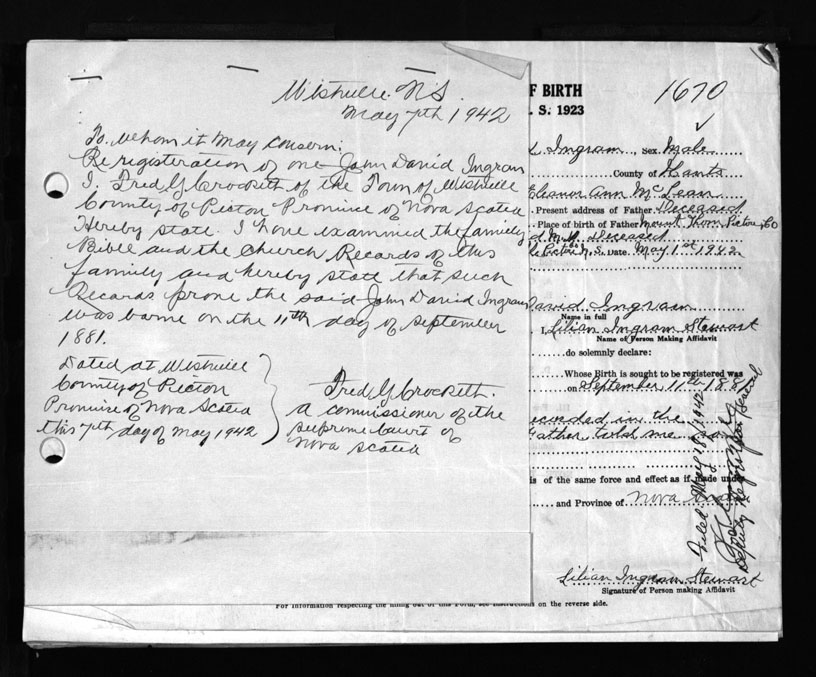 Westville N S.
May 7th 1942
To Whom it May Consern:
Re registeration of one John David Ingram
I. Fred G Crockett of the Town of Westville
County of Picton Province of Nova Scotia
Hereby state. I have examined the family
Bible and the Church Records of this
family and hereby state that such
Records prove the said John David Ingram
was borne on the 11th day of September
1881.
Dated at Westville
County of Picton
Province of Nova Scotia
this 7th day of May 1942
Fred G Crockett.
a commissioner of the
supreme court of
Nova Scotia
F BIRTH
. S. 1923
1670
Ingram, SEX Male
County of Hants
Eleanor Ann McLean
Present address of Father Deceased
Place of birth of Father Mount Thom Pictou Co
Deceased
Pictou N.S. DATE May 1st 1942
David Ingram
Name in full
I, Lilian Ingram Stewart
Name of Person Making Affidavit
do solemnly declare:
Whose Birth is sought to be registered was
on September 11th 1881
recorded in the
Father told me
is of the same force and effect as if made under
and Province of Nova Scotia
Filed May 18/1942
Deputy Registrar General
Lilian Ingram Stewart
Signature of Person making Affidavit
For information respecting the filling out of this Form, see instructions on the reverse side.